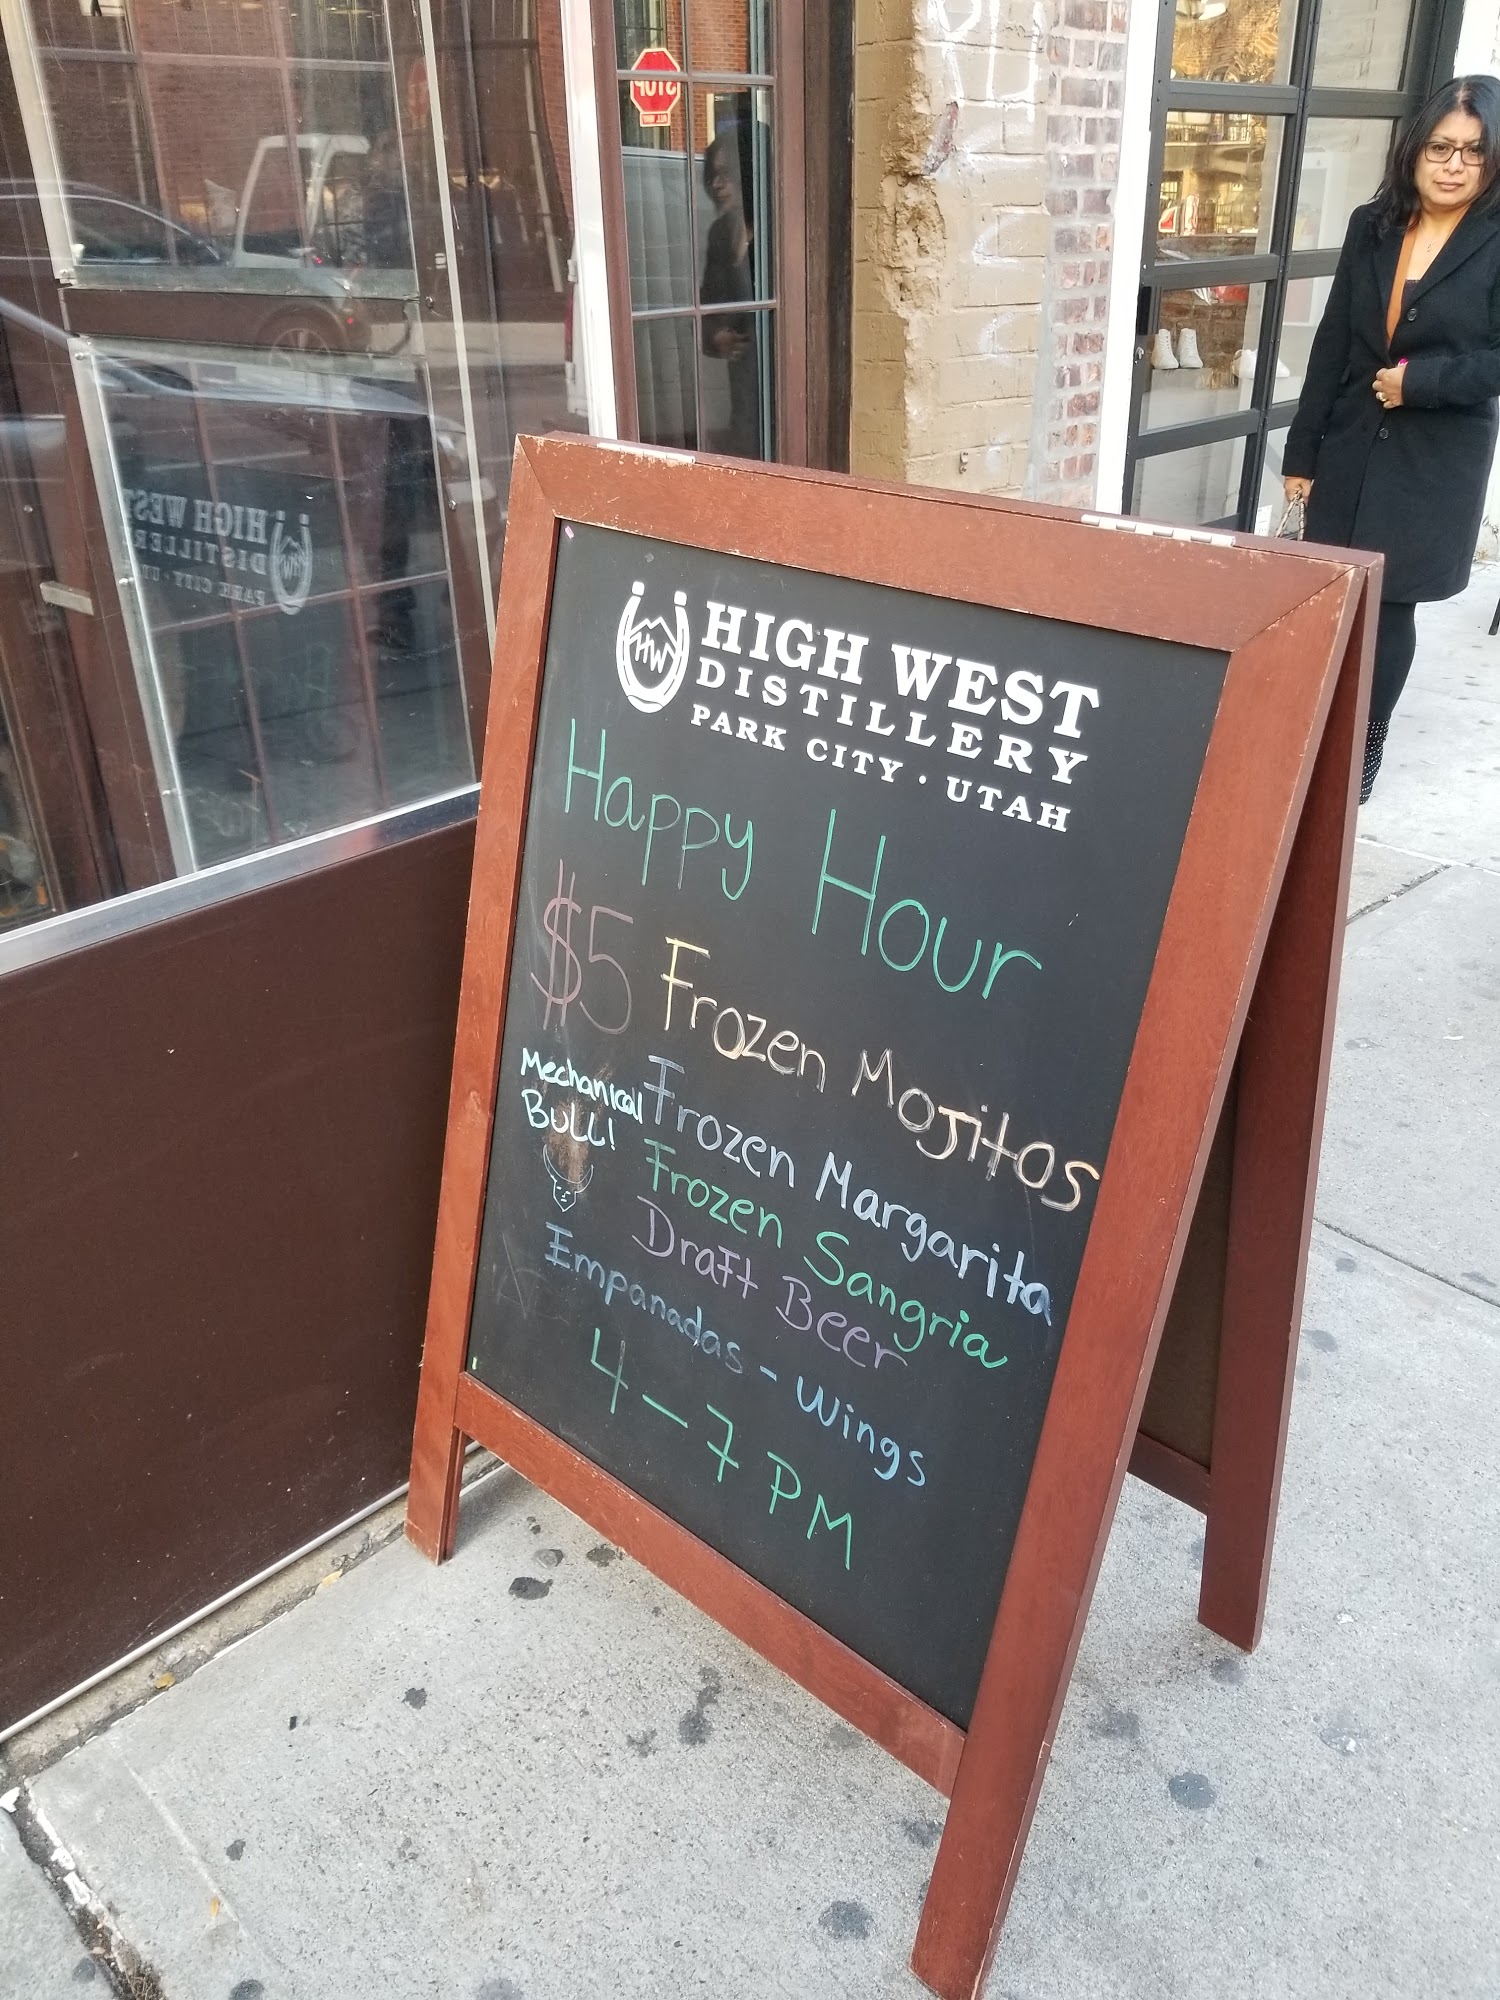 HIGH WEST
DISTILLERY
PARK CITY · UTAH
Happy Hour
$5 Frozen Mojitos
Mechanical
BULL!
Frozen Margarita
Frozen Sangria
Draft Beer
Empanadas - Wings
4-7 PM
HW
STOP
ALL WAY
HIGH WEST
DISTILLERY
PARK CITY